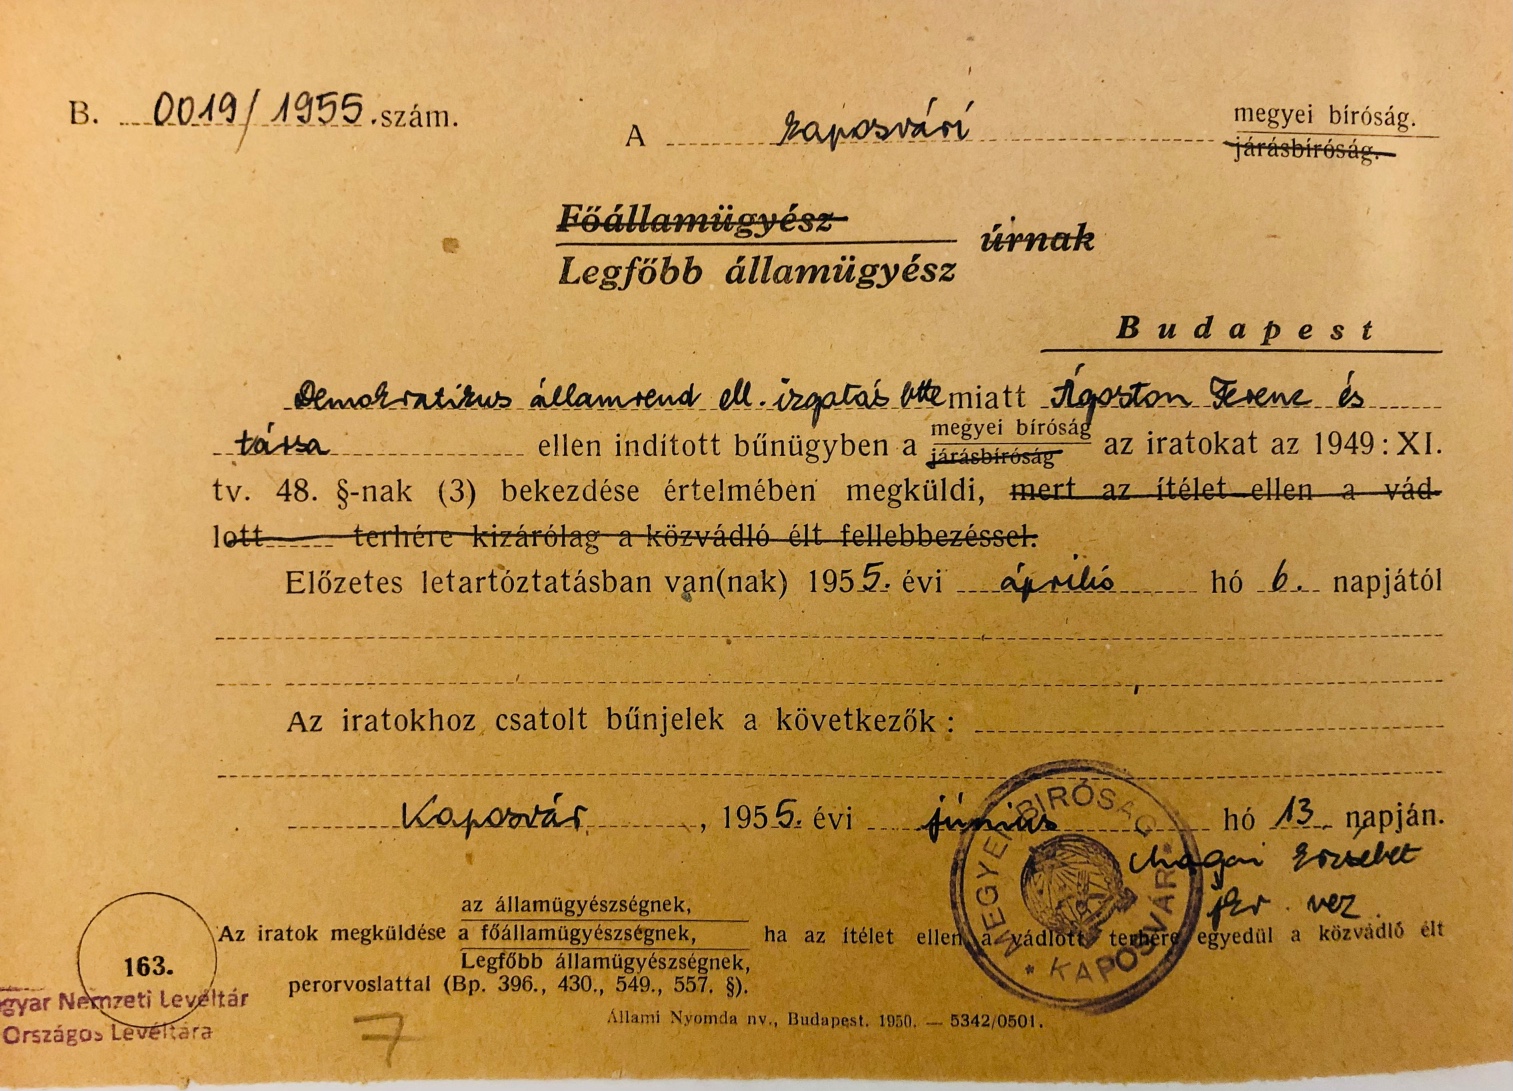 B. 0019/1955. szám.
A kaposvári megyei bíróság.
járásbíróság.
Főállamügyész úrnak
Legfőbb államügyész
Budapest
Demokratikus államrend ell. izgatás btte miatt Ágoston Ferenc és
társa ellen indított bűnügyben a megyei bíróság járásbíróság az iratokat az 1949 : XI.
tv. 48. §-nak (3) bekezdése értelmében megküldi, mert az ítélet ellen a vád-
lott terhére kizárólag a közvádló élt fellebbezéssel.
Előzetes letartóztatásban van(nak) 1955. évi április hó 6. napjától
Az iratokhoz csatolt bűnjelek a következők :
Kaposvár, 1955. évi június hó 13 napján.
MEGYEI BIRÓSÁG * KAPOSVÁR *
Erzsébet
vez
az államügyészségnek,
Az iratok megküldése a főállamügyészségnek, ha az ítélet ellen a vádlott terhére egyedül a közvádló élt
Legfőbb államügyészségnek,
perorvoslattal (Bp. 396., 430., 549., 557. §).
163.
gyar Nemzeti Levéltár
Országos Levéltára
7
Állami Nyomda nv., Budapest. 1950. — 5342/0501.